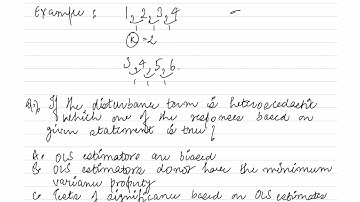 Example : 1, 2, 3, 4
K = 2
3, 4, 5, 6.
Q:) If the disturbance term is heteroscedastic
which one of the responses based on
given statement is true?
A: OLS estimators are biased
B: OLS estimators donot have the minimum
variance property
C: Tests of significance based on OLS estimates